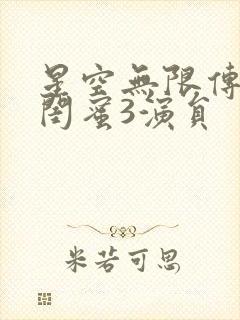 星空無限傳
閏蜜3演員
米若可思